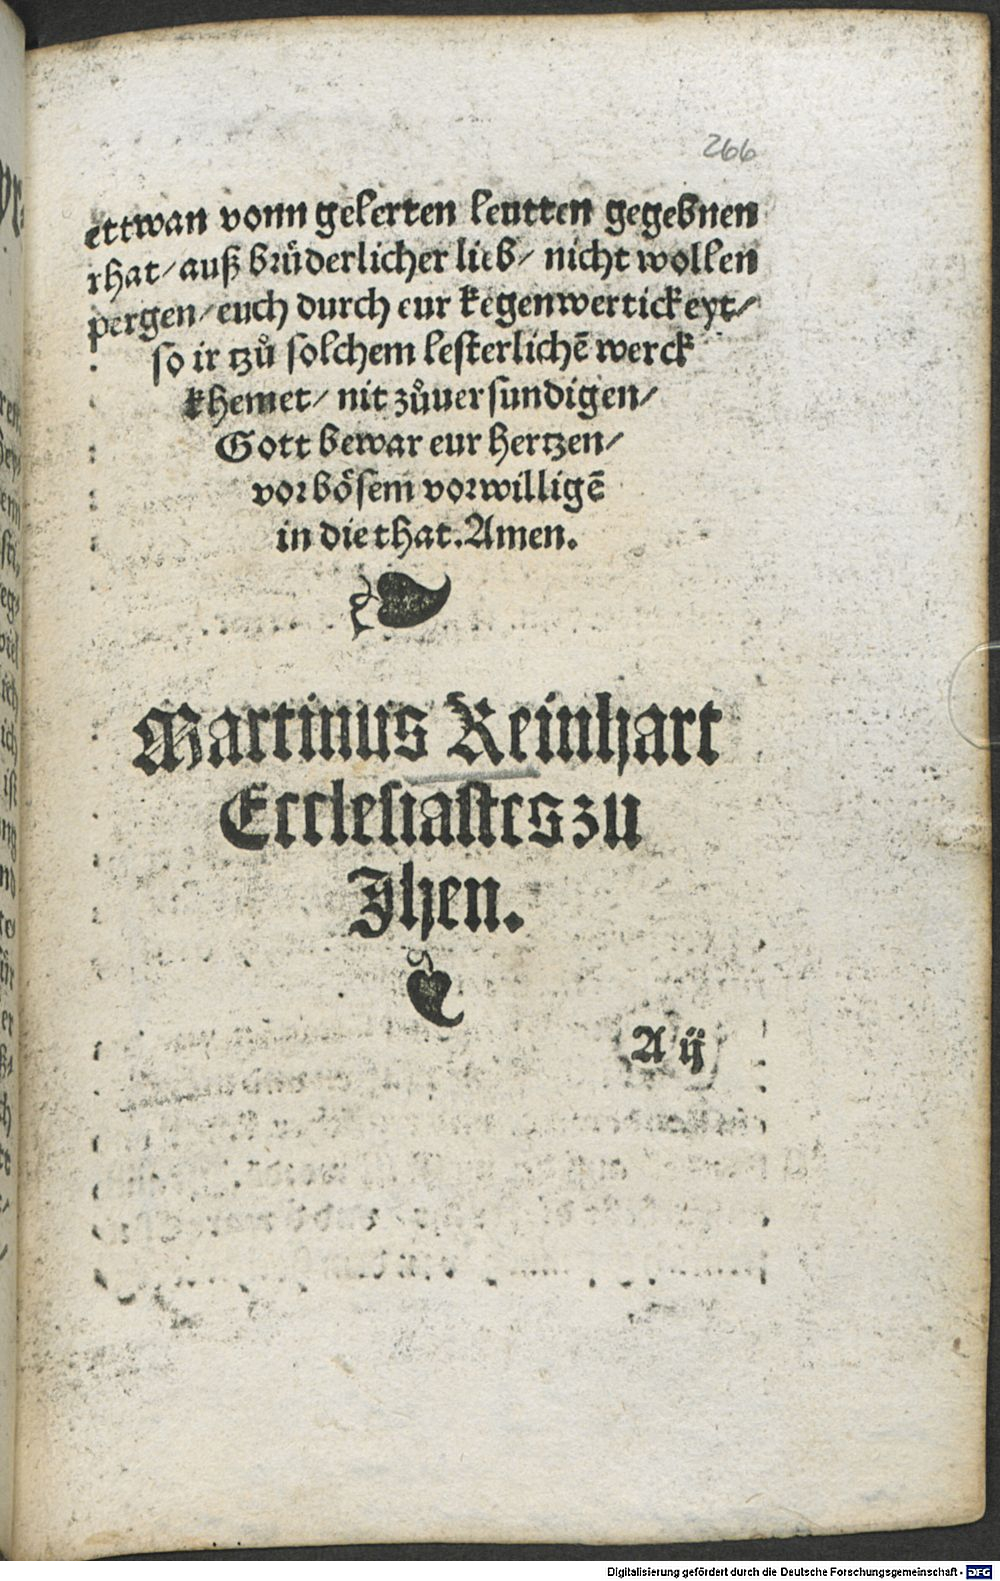 266
ettwan vonn gelerten leutten gegebnen
rhat/ auß brüderlicher lieb/ nicht wollen
pergen/ euch durch eur kegenwertickeyt/
so ir tzů solchem lesterlichē werck
khemet/ nit zůuersundigen/
Gott bewar eur hertzen/
vor bösem vorwilligē
in die that. Amen.
Martinus Reinhart
Ecclesiastes zu
Jhen.
A ij
Digitalisierung gefördert durch die Deutsche Forschungsgemeinschaft - DFG